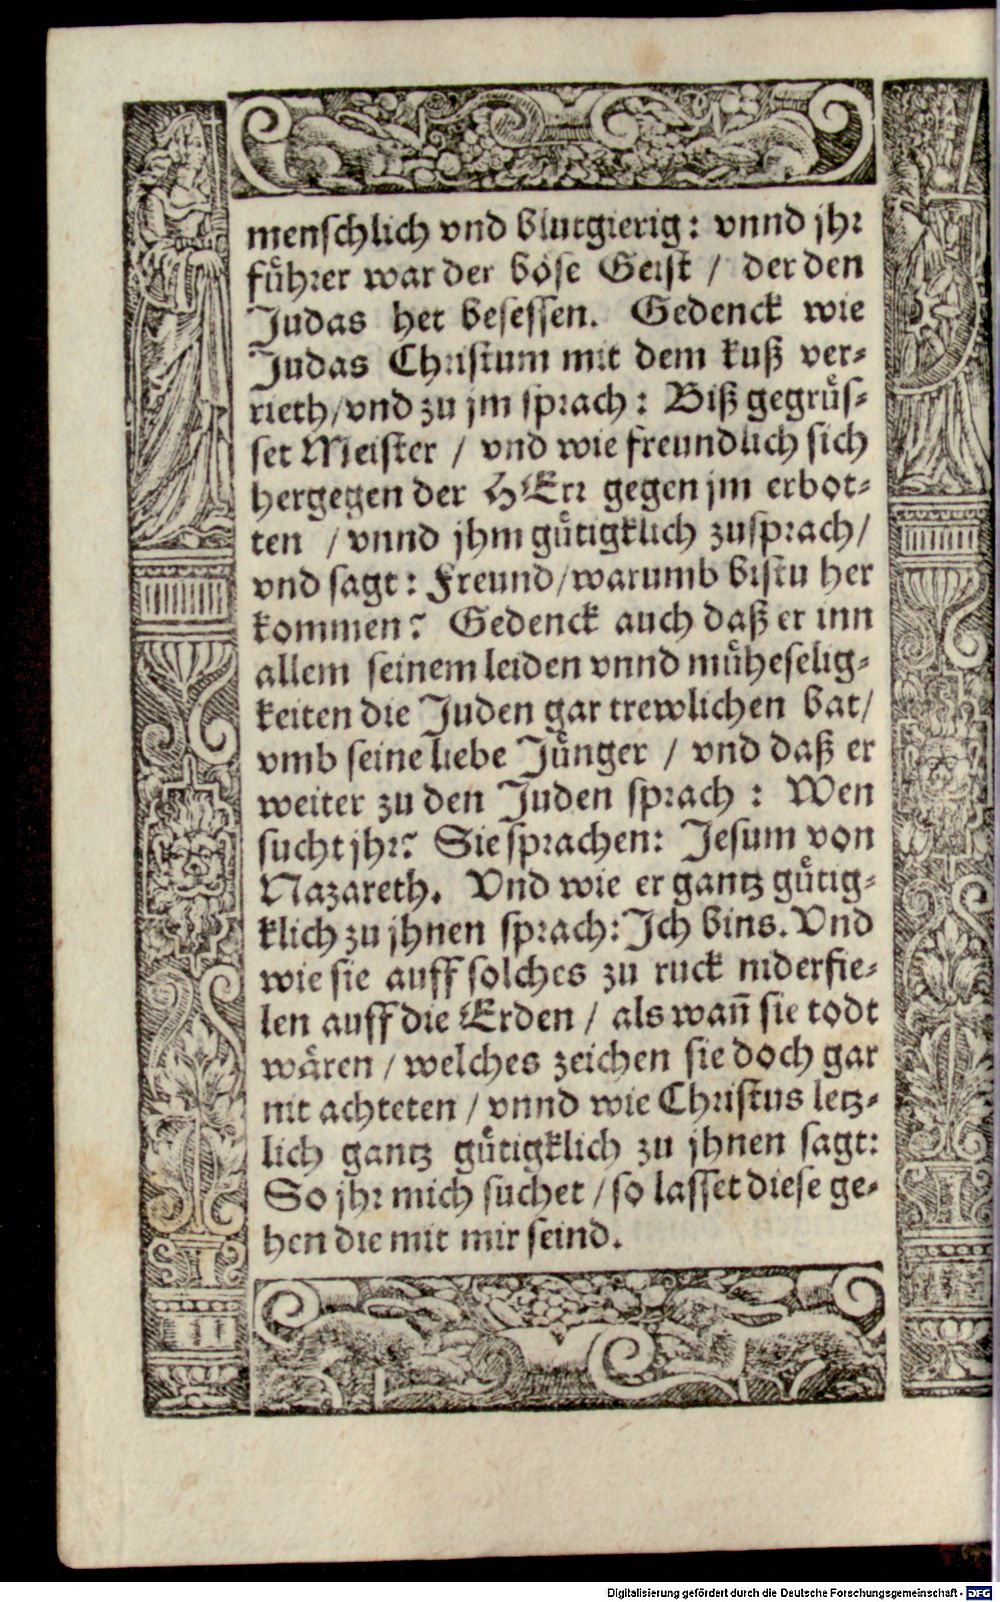 menschlich vnd blutgierig: vnnd jhr
fuͤhrer war der boͤse Geist / der den
Judas het besessen. Gedenck wie
Judas Christum mit dem kuß ver-
rieth/vnd zu jm sprach: Biß gegruͤs-
set Meister / vnd wie freundlich sich
hergegen der HErr gegen jm erbot-
ten / vnnd jhm guͤtigklich zusprach/
vnd sagt: Freund/warumb bistu her
kommen? Gedenck auch daß er inn
allem seinem leiden vnnd muͤheselig-
keiten die Juden gar trewlichen bat/
vmb seine liebe Juͤnger / vnd daß er
weiter zu den Juden sprach: Wen
sucht jhr? Sie sprachen: Jesum von
Nazareth. Vnd wie er gantz guͤtig-
klich zu jhnen sprach: Ich bins. Vnd
wie sie auff solches zu ruck niderfie-
len auff die Erden / als wañ sie todt
waͤren / welches zeichen sie doch gar
nit achteten / vnnd wie Christus letz-
lich gantz guͤtigklich zu jhnen sagt:
So jhr mich suchet / so lasset diese ge-
hen die mit mir seind.
Digitalisierung gefördert durch die Deutsche Forschungsgemeinschaft - DFG